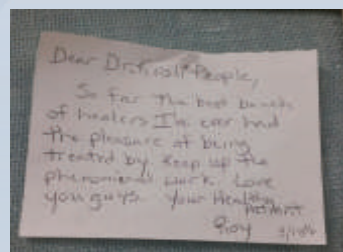 Dear People,
So far the best bunch
of healers I've ever had
the pleasure of being
treated by. Keep up the
phenomenal work. Love
you guys. Your Healthy
Patient